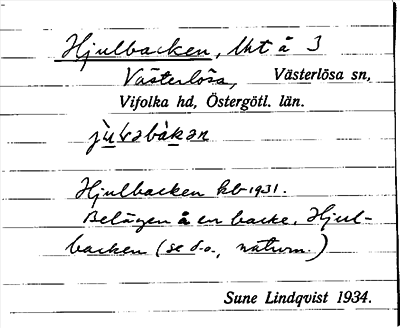 Hjulbacken, lht å 3
Västerlösa, Västerlösa sn,
Vifolka hd, Östergötl. län.
Hjulbacken kb 1931.
Belägen å en backe. Hjul-
backen (se d.o., naturn.)
Sune Lindqvist 1934.